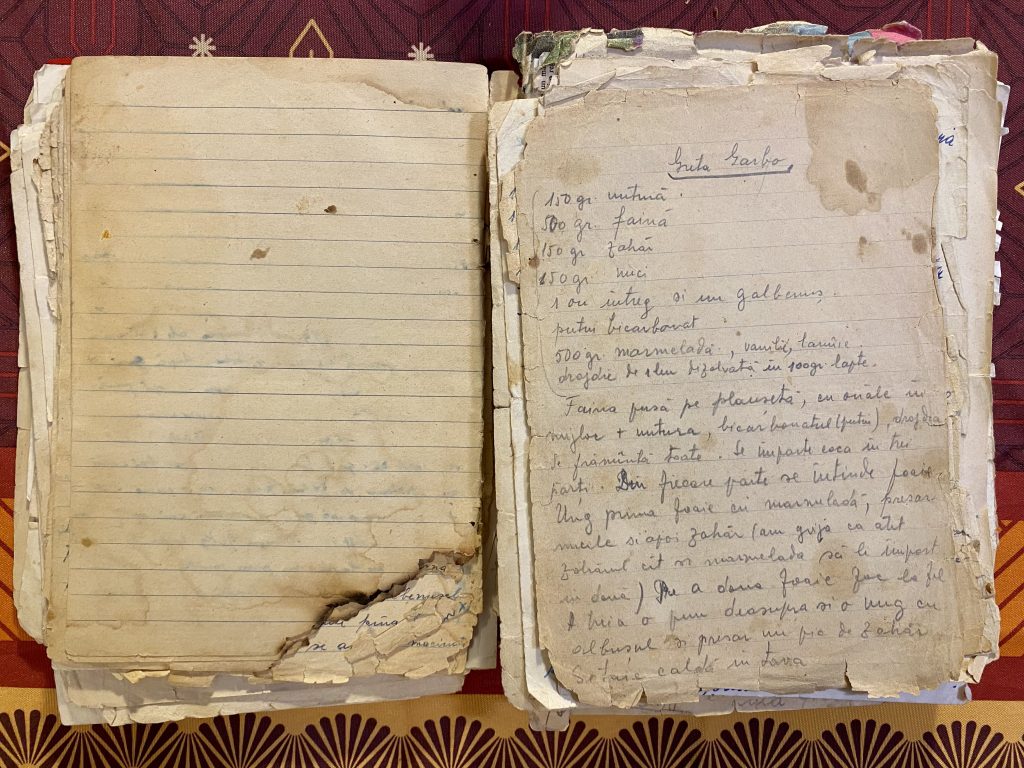 Greta Garbo
150 gr. untură.
500 gr. faină
150 gr zahăr
150 gr. nuci
1 ou intreg si un galbenuș.
putin bicarbonat
500 gr. marmeladă, vanilie, lamîie.
drojdie de 1 leu dizolvată in 100 gr. lapte.
Faina pusă pe planșetă, cu ouăle in
mijloc + untura, bicarbonatul (putin), drojdia
se frămîntă toate. Se imparte coca in trei
părti. Din fiecare parte se intinde foaie.
Ung prima foaie cu marmeladă, presar
nucile si apoi zahăr (am grija ca atît
zahărul cît si marmelada să le impart
in două) Pe a doua foaie fac la fel
A treia o pun deasupra si o ung cu
albusul si presar un pic de zahăr
Se taie caldă in tava
pînă
se a